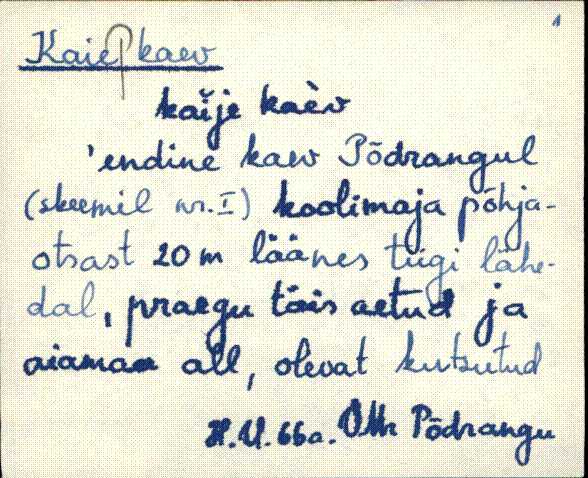 1
Kaie kaev
kaĭje kaèv
'endine kaev Põdrangul
(skeemil nr. I) koolimaja põhja-
otsast 20 m läänes tiigi lähe-
dal, praegu täis aetud ja
aiamaa all, olevat kutsutud
H.U. 66a. Põdrangu